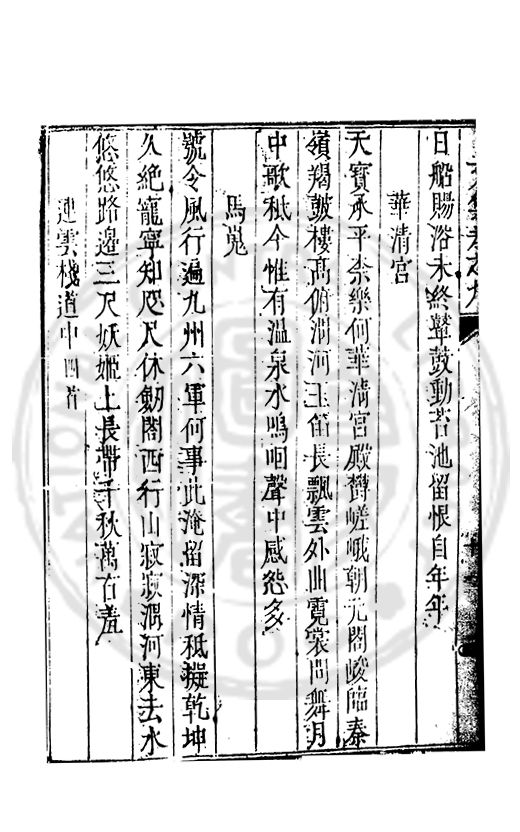 日船賜浴未終鼙鼓動苦池留恨自年年
華清宮
天寳承平奈樂何華清宮殿欝嵯峨朝元閣峻臨秦
嶺羯皷樓髙俯渭河玉笛長飄雲外曲霓裳閒舞月
中歌秪今惟有溫泉水嗚咽聲中感怨多
馬嵬
號令風行遍九州六軍何事此淹留深情秪擬乾坤
久絶寵寧知咫尺休劒閣西行山寂寂渭河東去水
悠悠路邉三尺妖姬土長帶千秋萬古羞
連雲棧道中四首